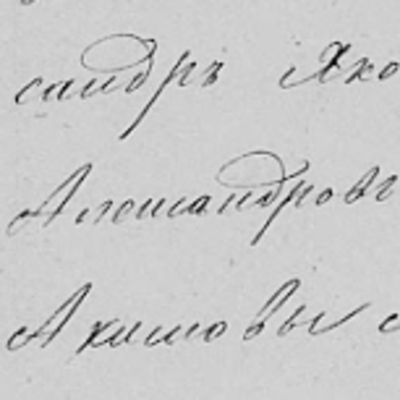 сандръ Яко
Александров
Акимовы